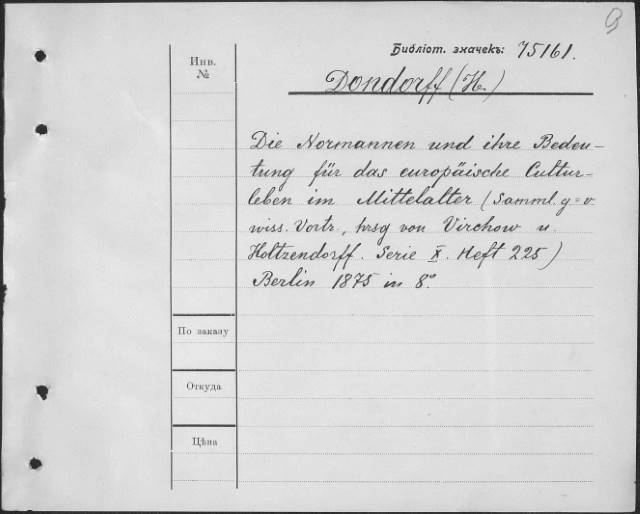 Библіот. значекъ: 75161.
Инв.
№
Dondorff (H.)
Die Normannen und ihre Bedeu-
tung für das europäische Cultur-
leben im Mittelalter (Samml. g=v
wiss. Vortr., hrsg von Virchow u.
Holtzendorff. Serie X. Heft 225)
Berlin 1875 in 8°.
По заказу
Откуда
Цѣна